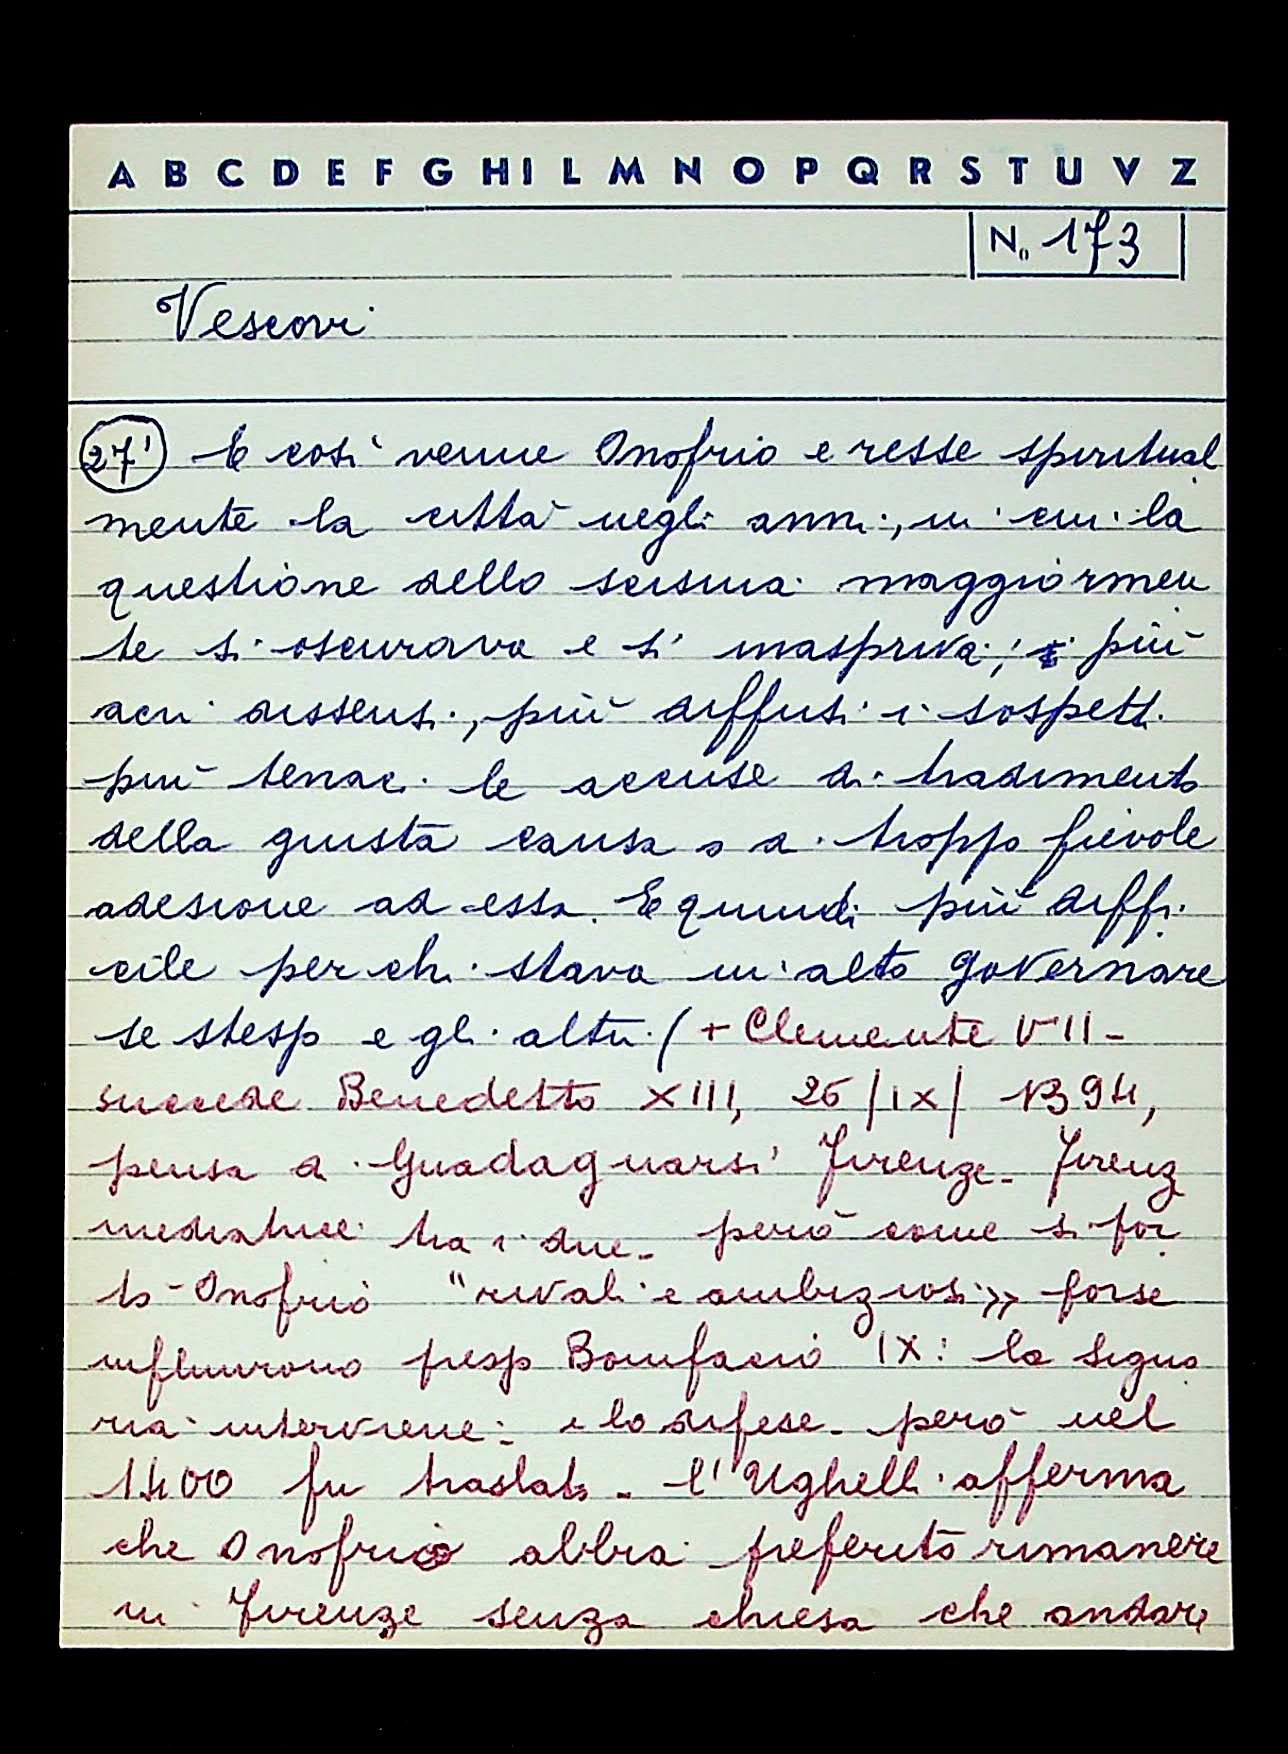 A B C D E F G H I L M N O P Q R S T U V Z
N. 173
Vescovi
27' E così venne Onofrio e resse spiritual
mente la città negli anni, in cui la
questione dello scisma maggiormen
te si oscurava e si inaspriva; più
acri dissensi, più diffusi i sospetti
più tenaci le accuse di tradimento
della giusta causa o di troppo fievole
adesione ad essa. E quindi più diffi
cile per chi stava in alto governare
se stesso e gli altri. ( + Clemente VII -
succede Benedetto XIII, 26 |IX| 1394,
pensa di Guadagnarsi Firenze - Firenz
mediatrice tra i due - però come si por
tò Onofrio "rivali e ambiziosi» forse
influirono presso Bonifacio IX: la Signo
ria interviene: e lo difese - però nel
1400 fu traslato - l'Ughelli afferma
che Onofrio abbia preferito rimanere
in Firenze senza chiesa che andare